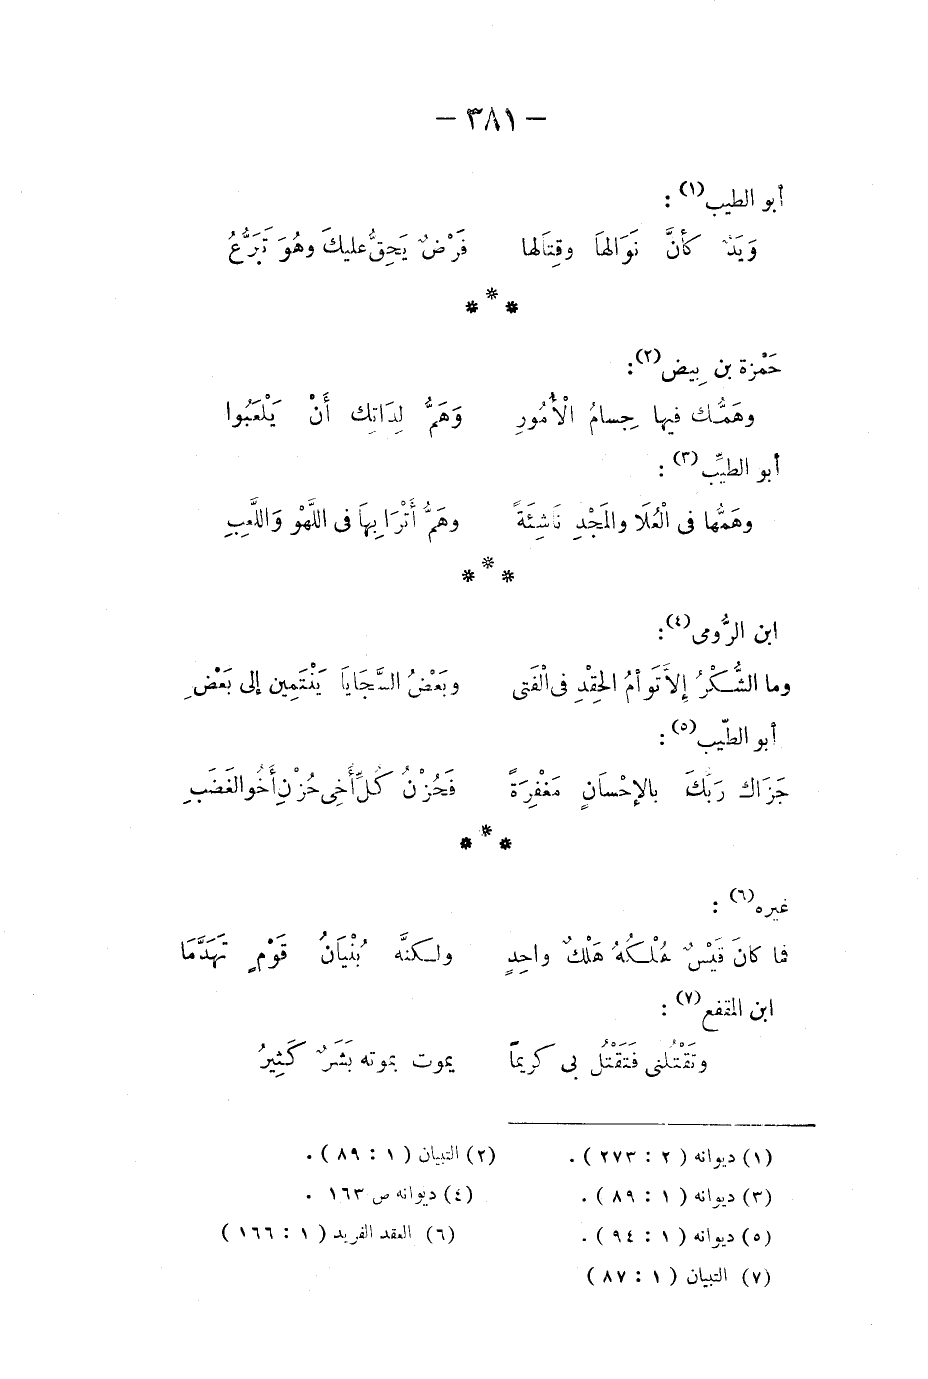 — ٣٨١ —
أبو الطيب(١) :
وَيَدٌ كأنَّ نَوَالهَا وقِتَالها فَرْضٌ يَحِقُّ عليكَ وهُوَ تَبَرُّعُ
* * *
حَمْزة بن بِيض(٢) :
وهَمُّك فيها جِسامُ الْأُمُورِ وَهَمُّ لِدَاتِك أَنْ يَلْعَبُوا
أبو الطيِّب(٣) :
وهَمُّها فى الْعُلَا والمَجْدِ نَاشِئَةً وهَمُّ أَتْرَابِها فى اللَّهْوِ وَاللَّعِبِ
* * *
ابن الرُّومى(٤) :
وما الشُّكْرُ إلاَّ تَوْأمُ الحِقْدِ فى الْفَتى وبَعْضُ السَّجَايَا يَنْتَمِين إلى بَعْضِ
أبو الطّيب(٥) :
جَزَاك رَبُّكَ بالإحْسَانِ مَغْفِرَةً فَحُزْنُ كُلِّ أَخِى حُزْنٍ أَخُو الغَضَبِ
* * *
غيره(٦) :
فما كانَ قَيْسٌ هُلْكُهُ هَلْكٌ واحِدٍ ولكنَّه بُنْيَانُ قَوْمٍ تَهَدَّمَا
ابن المقفع(٧) :
وتَقْتُلنى فَتَقْتُل بى كريمًا يموت بموته بَشَرٌ كَثِيرُ
(١) ديوانه ( ٢ : ٢٧٣ ) . (٢) التبيان ( ١ : ٨٩ ) .
(٣) ديوانه ( ١ : ٨٩ ) . (٤) ديوانه ص ١٦٣ .
(٥) ديوانه ( ١ : ٩٤ ) . (٦) العقد الفريد ( ١ : ١٦٦ )
(٧) التبيان ( ١ : ٨٧ )